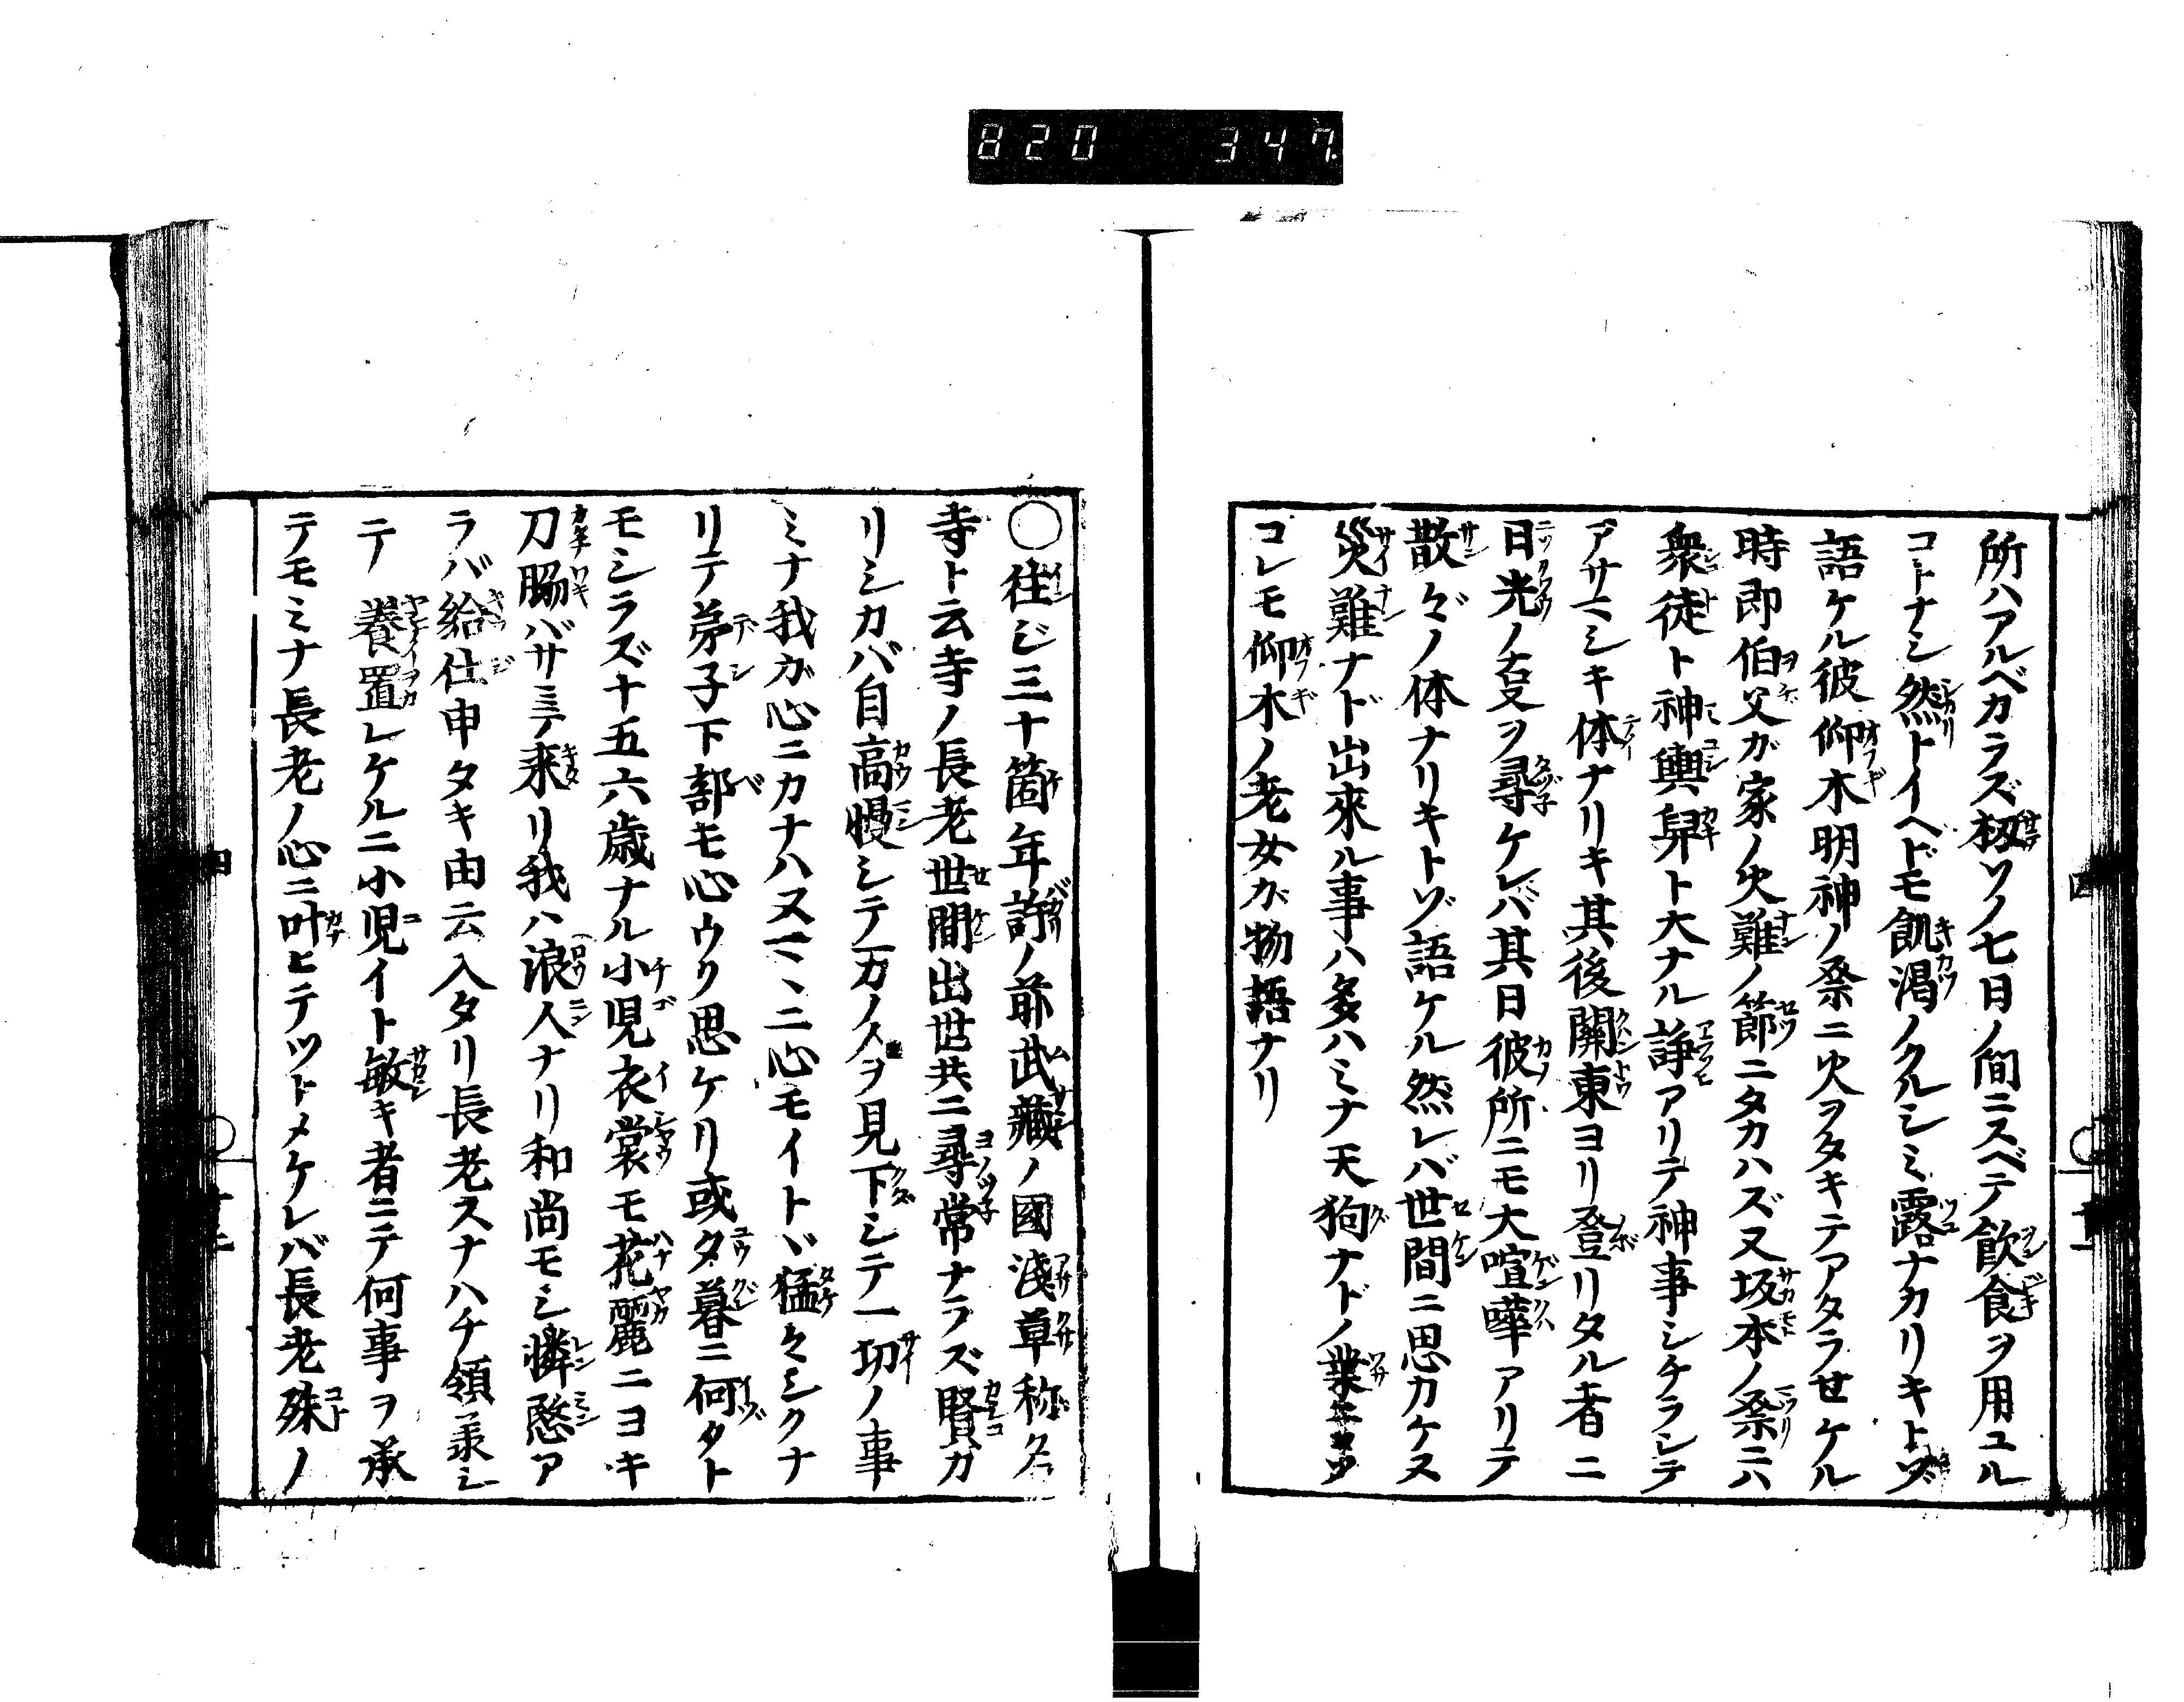 820 347
所ハアルベカラズ扨ソノ七日ノ間ニスベテ飲食ヲ用ユル
コトナシ然トイヘドモ飢渇ノクルシミ露ナカリキトゾ
語ケル彼仰木明神ノ祭ニ火ヲタキテアタラせケル
時即伯父ガ家ノ火難ノ節ニタカハズ又坂本ノ祭ニハ
衆徒ト神輿舁ト大ナル諍アリテ神事シチラシテ
アサマシキ体ナリキ其後關東ヨリ登リタル者ニ
日光ノ㕝ヲ尋ケレバ其日彼所ニモ大喧嘩アリテ
散々ノ体ナリキトゾ語ケル然レバ世間ニ思カケヌ
災難ナド出來ル事ハ多ハミナ天狗ナドノ業ニヤ
コレモ仰木ノ老女ガ物語ナリ
〇往ジ三十箇年許ノ前武藏ノ國淺草称名
寺ト云寺ノ長老世間出世共ニ尋常ナラズ賢カ
リシカバ自高慢シテ万ノ人ヲ見下シテ一切ノ事
ミナ我ガ心ニカナハヌマヽニ心モイトヾ猛々シクナ
リテ弟子下部モ心ウク思ケリ或夕暮ニ何タト
モシラズ十五六歳ナル小児衣裳モ花麗ニヨキ
刀脇バサミテ来リ我ハ浪人ナリ和尚モシ憐愍ア
ラバ給仕申タキ由云入タリ長老スナハチ領掌シ
テ養置レケルニ小児イト敏キ者ニテ何事ヲ承
テモミナ長老ノ心ニ叶ヒテツトメケレバ長老殊ノ